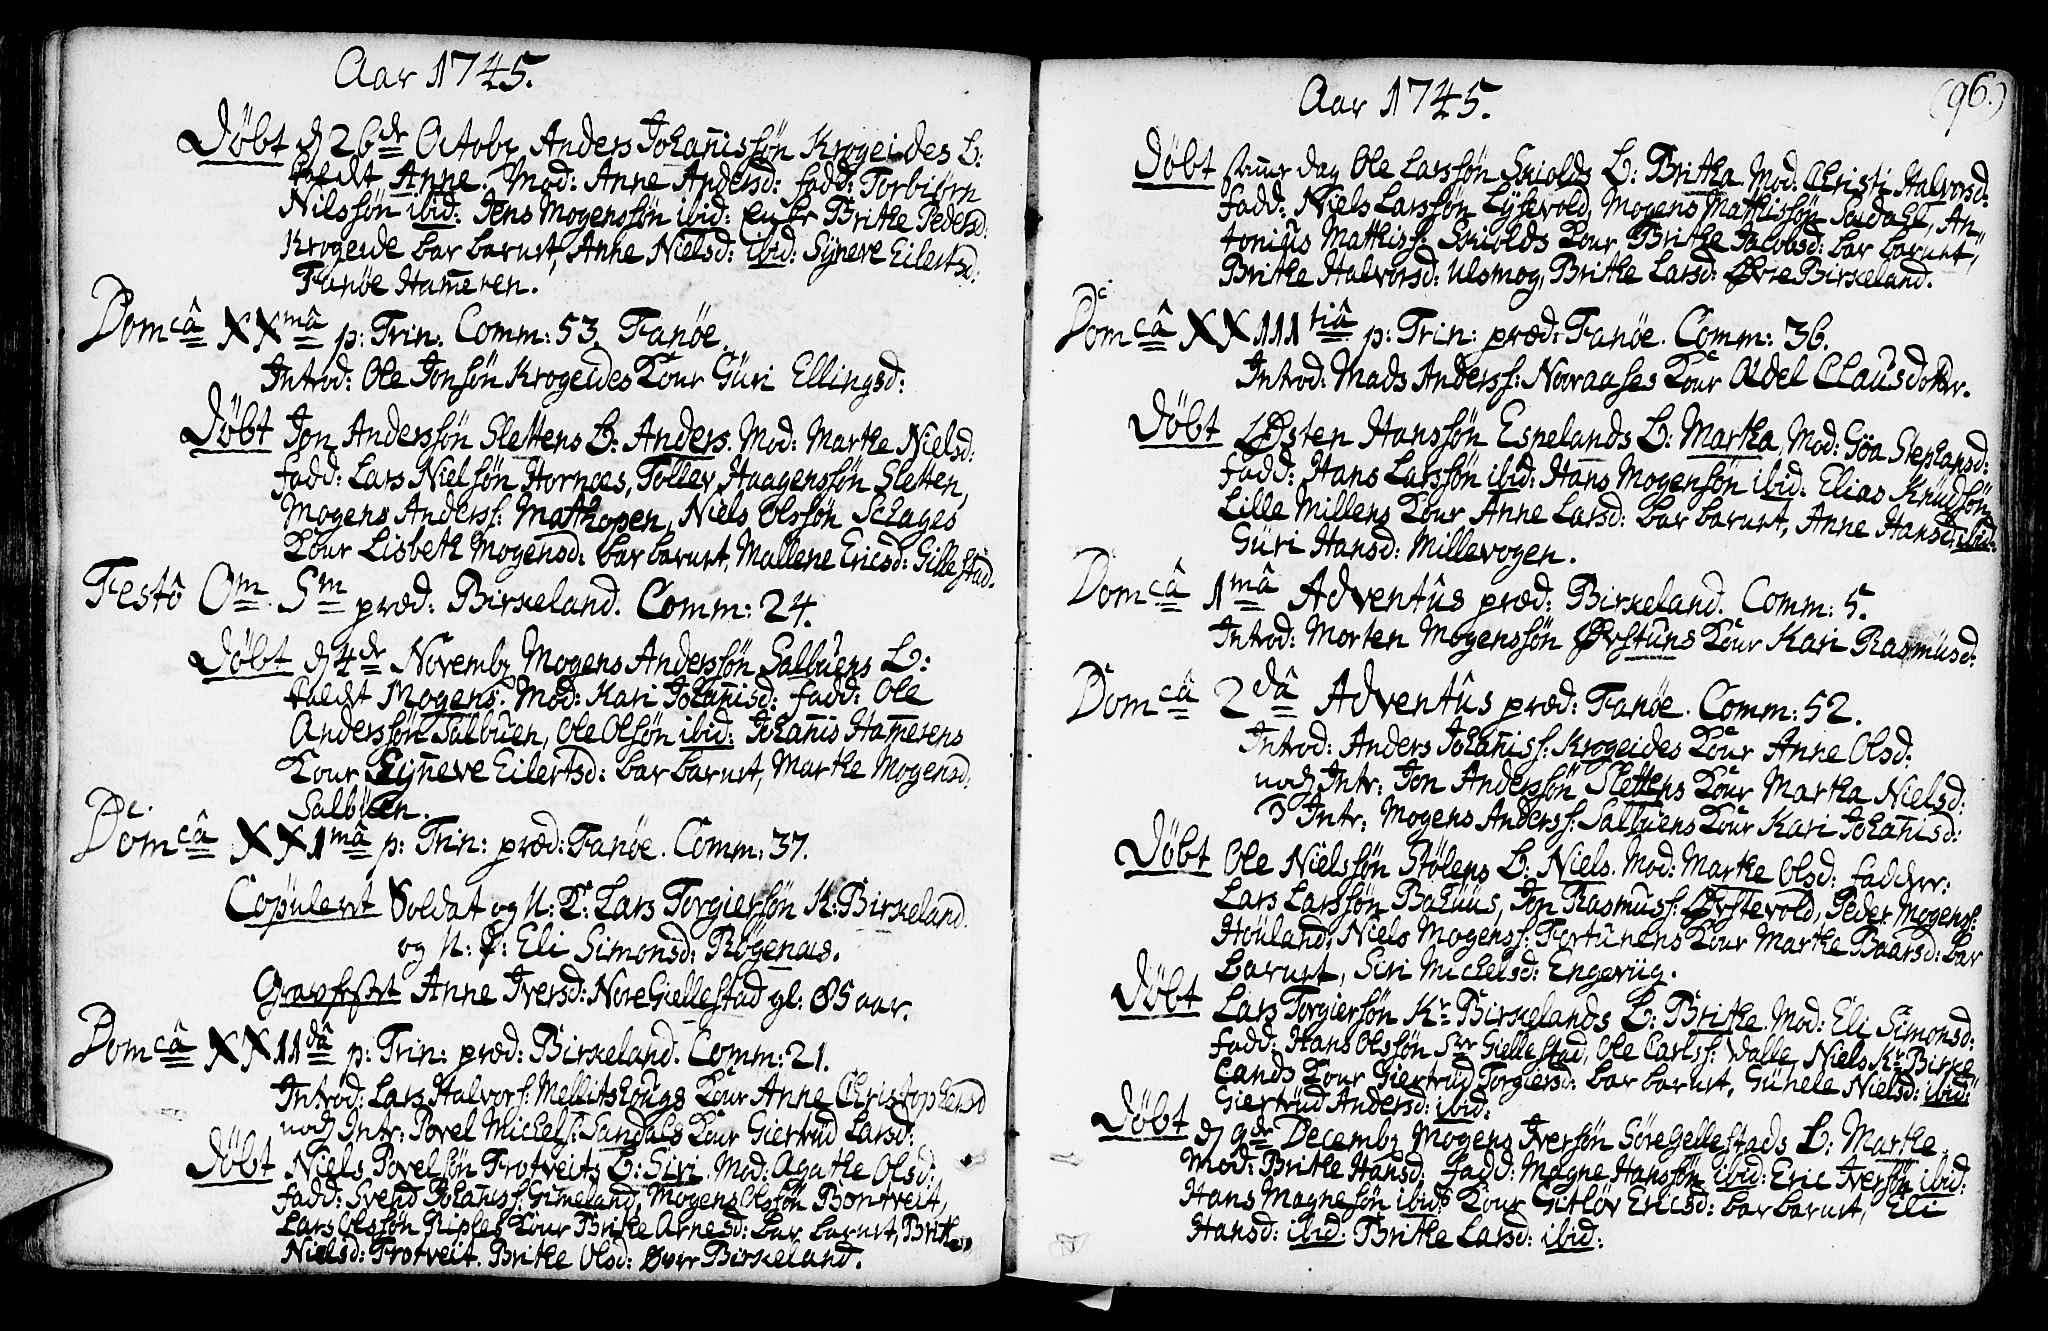 Aar 1745.
Døbt d 26de Octobr Anders Johañisøn Krogeides B:
kaldt Anne. Mod: Anne Andersd: fadd: Torbiørn
Nilssøn ibid: Jens Mogenssøn ibid: Brithe Pedersd:
Krogeide bar barnet, Anne Nielsd: ibid: Synneve Eilertsd:
Fanøe Ham̃eren.
Domcâ XXmâ p: Trin: Comm: 53. Fanøe.
Introd: Ole Jonsøn Krogeides Kone Güri Ellingsd:
Døbt Jon Anderssøn Slettens B: Anders. Mod: Marthe Nielsd:
fadd: Lars Nielsøn Hornæs, Tollev Haagenssøn Sletten,
Mogens Anderss: Mathopen, Niels Olssøn Schages
Kone Lisbeth Mogensd: bar barnet, Mallene Ericsd: Gillestad.
Festô Om̃. Sm̃ præd: Birkeland. Comm: 24.
Døbt d 4de Novembr Mogens Anderssøn Salbuens B:
kaldt Mogens. Mod: Kari Johañisd: fadd: Ole
Anderssøn Salbuen, Ole Olsøn ibid: Johañis Ham̃erens
Kone Syneve Eilertsd: bar barnet, Marthe Mogensd.
Salbuen.
Domcâ XX1mâ p: Trin: præd: Fanøe. Comm: 37.
Copulert Soldat og U: K: Lars Torgiersøn K: Birkeland.
og U: P: Eli Simonsd: Røgenæs.
Gravfæst Anne Iversd: Nore Giellestad gl: 85 aar.
Domcâ XX11dâ p: Trin: præd: Birkeland. Comm: 21.
Introd: Lars Halvors: Mellitshougs Kone Anne Christophersd
nok Intr: Povel Michels: Sandals Kone Giertrüd Larsd:
Døbt Niels Povelsøn Trotveits B: Siri. Mod: Agathe Olsd:
fadd: Svend Johañss: Gim̃eland, Mogens Olssøn Bontveit,
Lars Olssøn Riples Kone Brithe Arnesd: bar barnet, Brithe
Nielsd: Trotveit. Brithe Olsd: Øvre Birkeland.
(96.)
Aar 1745.
Døbt dag Ole Larssøn Skiolds B: Britha. Mod: Christi Halvorsd:
fadd: Niels Larssøn Lysevold, Mogens Mathissøn Soldahl, An
tonius Matthiss: Skiolds Kone Brithe Jacobsd: bar barnet,
Brithe Halvorsd: Ulsmog, Brithe Larsd: Øvre Birkeland.
Domcâ XX111tiâ p: Trin: præd: Fanøe. Comm: 36.
Introd: Mads Anderss: Noraases Kone Aldel Clausdotter.
Døbt Østen Hanssøn Espelands B: Martha, Mod: Göa Stephansd:
fadd: Hans Larssøn ibid: Hans Mogensøn ibid: Elias Knudsøn
Lille Millens Kone Anne Larsd: bar barnet, Anne Hansd: ibid:
Gûri Hansd: Millevogen.
Domcâ 1mâ Adventûs præd: Birkeland. Comm: 5.
Introd: Morten Mogenssøn Ørstuns Kone Kari Rasmüsd:
Domcâ 2dâ Adventûs præd: Fanøe. Comm: 52.
Introd: Anders Johañiss: Krogeides Kone Anne Olsd:
nok Intr: Jon Anderssøn Slettens Kone Martha Nielsd:
3 Intr: Mogens Anderss: Salbuens Kone Kari Johañisd:
Døbt Ole Nielssøn Stølens B: Niels. Mod: Marthe Olsd: fadder:
Lars Larssøn Bahuus, Jon Rasmuss: Ørstevold, Peder Mogenss:
Høuland, Niels Mogenss: Fortunens Kone Marthe Baarsd: bar
barnet, Siri Michelsd: Engevüg.
Døbt Lars Torgiersøn Kr Birkelands B: Brithe. Mod: Eli Simonsd:
fadd: Hans Olssøn Sre Giellestad, Ole Carlss: Dalle, Niels Kr Birke
lands Kone Giertrüd Torgiersd: bar barnet, Gunele Nielsd: ibid:
Giertrüd Andersd: ibid:
Døbt d 9de Decembr Mogens Iversøn Søregellestads B: Marthe.
Mod: Brithe Hansd, fadd: Magne Hanssøn ibid: Eric Iversøn ibid:
Hans Magnesøn ibid: Kone Gitløv Ericsd: bar barnet, Eli
Hansd: ibid: Brithe Larsd: ibid: